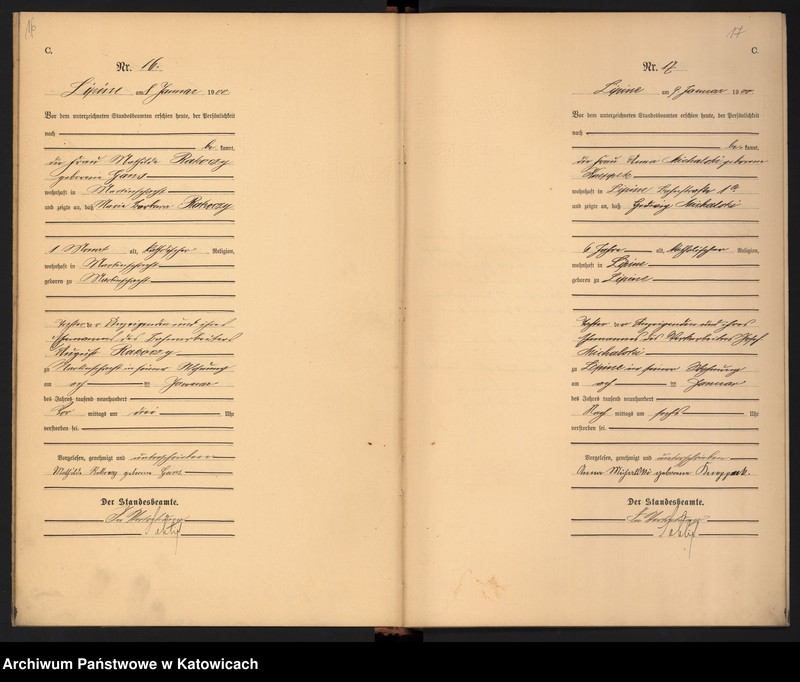 16
C.
Nr. 16.
Lipine am 8 Januar 1900
Vor dem unterzeichneten Standesbeamten erschien heute, der Persönlichkeit
nach
be kannt,
die Frau Mathilde Rakoczy
geborene Gans
wohnhaft in Martinschacht
und zeigte an, daß Maria Barbara Rakoczy
1 Monat alt, katholischer Religion,
wohnhaft in Martinschacht
geboren zu Martinschacht
Tochter der Anzeigenden und ihres
Ehemannes des
August Rakoczy
zu Martinschacht in seiner Wohnung
am acht ten Januar
des Jahres tausend neunhundert
Vor mittags um drei Uhr
verstorben sei.
Vorgelesen, genehmigt und unterschrieben
Mathilde Rakoczy geborene Gans
Der Standesbeamte.
In Vertretung
17
C.
Nr. 17
Lipine am 9 Januar 1900
Vor dem unterzeichneten Standesbeamten erschien heute, der Persönlichkeit
nach
be kannt,
die Frau Anna Michalski geborene
wohnhaft in Lipine
und zeigte an, daß Hedwig Michalski
6 Jahre alt, katholischer Religion,
wohnhaft in Lipine
geboren zu Lipine
Tochter der Anzeigenden und ihres
Ehemannes des Josef
Michalski
zu Lipine in seiner Wohnung
am acht ten Januar
des Jahres tausend neunhundert
Nach mittags um sechs Uhr
verstorben sei.
Vorgelesen, genehmigt und unterschrieben
Anna geborene
Der Standesbeamte.
In Vertretung
Archiwum Państwowe w Katowicach